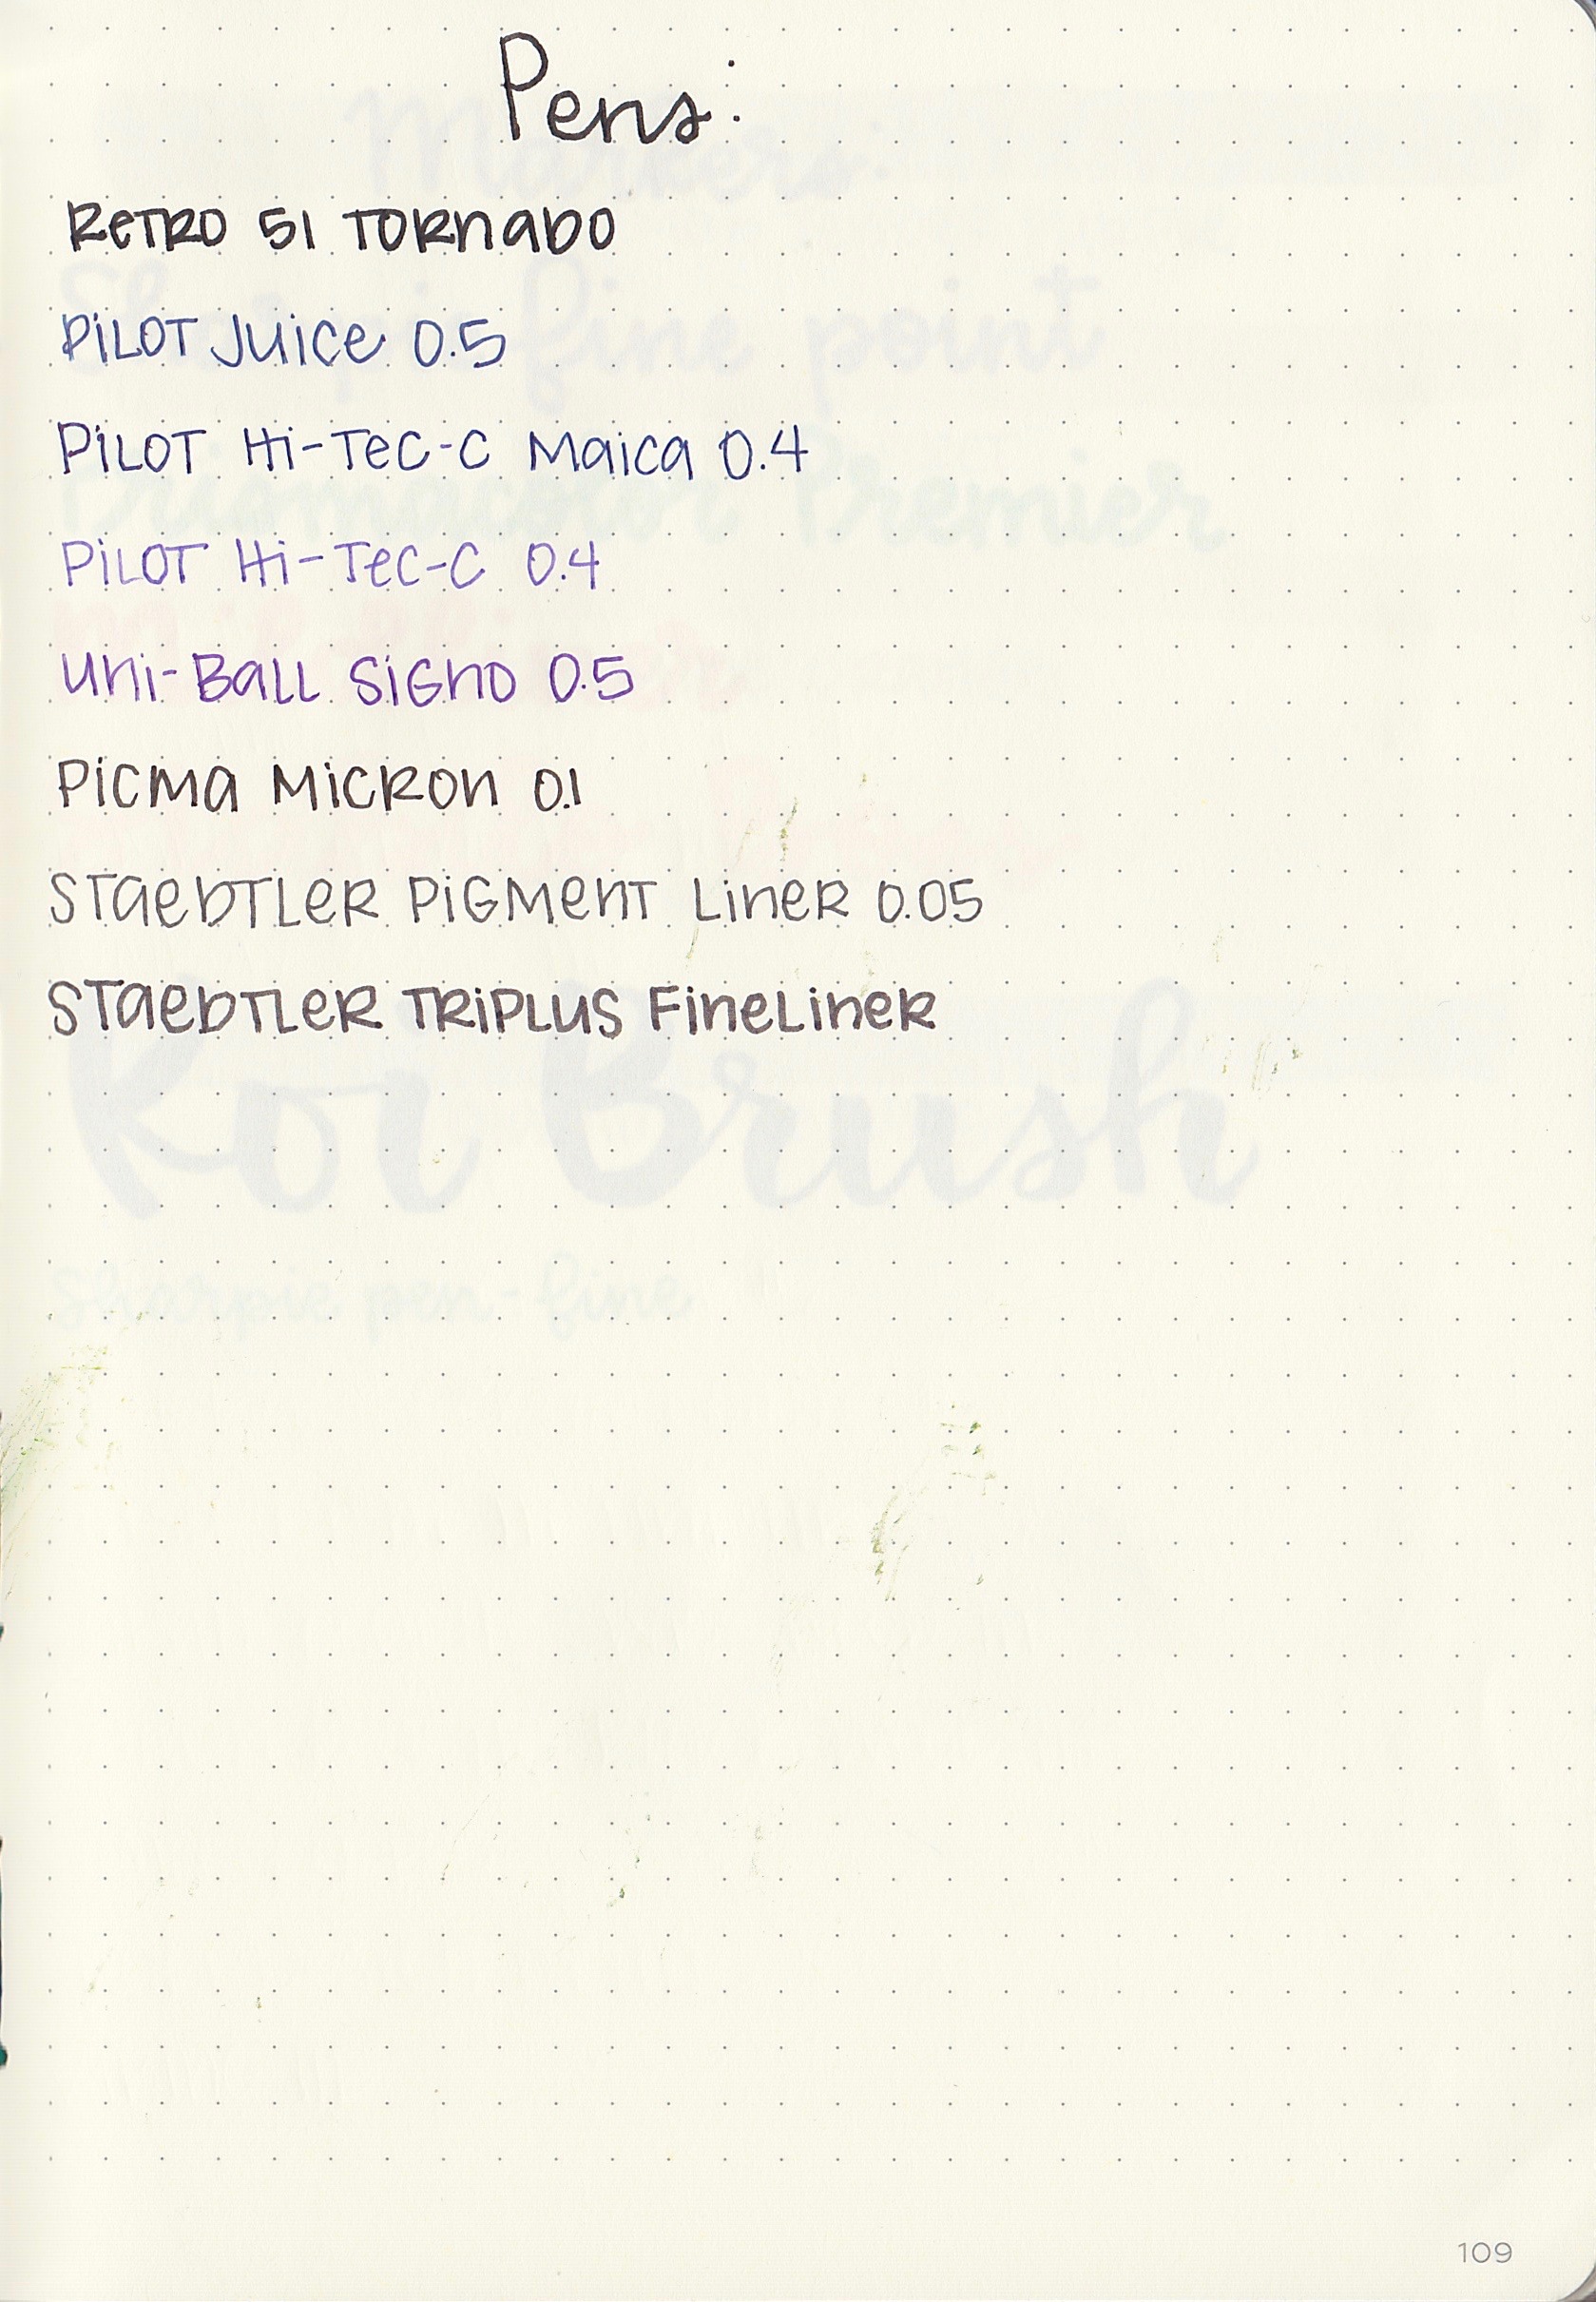 Pens:
RETRO 51 TORNADO
PILOT JUICE 0.5
PILOT Hi-TEC-C MAICA 0.4
PILOT Hi-TEC-C 0.4
UNI-BALL SIGNO 0.5
PICMA MICRON 0.1
STAEDTLER PIGMENT LINER 0.05
STAEDTLER TRIPLUS FINELINER
Koi Brush
Sharpie pen-fine
109